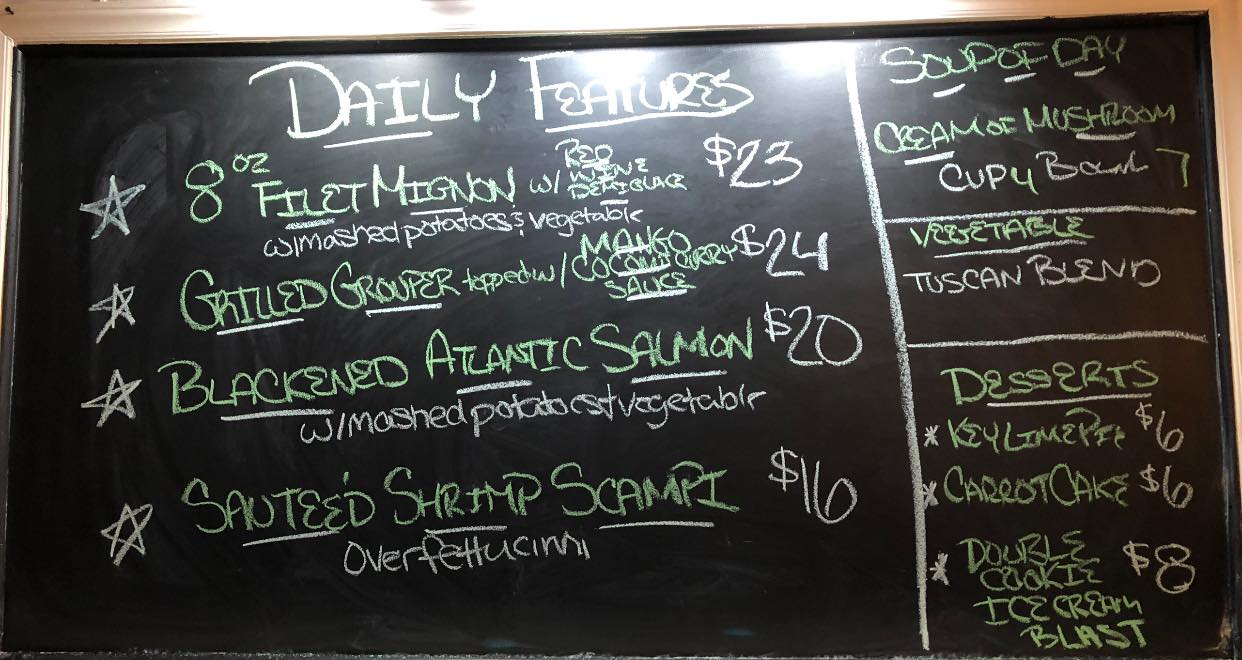 DAILY FEATURES
8 oz FILET MIGNON w/ RED WINE DEMIGLACE $23
w/mashed potatoes & vegetable
GRILLED GROUPER topped w/ MANGO COCONUT CURRY SAUCE $24
BLACKENED ATLANTIC SALMON $20
w/mashed potatoes + vegetable
SAUTEÉD SHRIMP SCAMPI $16
Over fettucinni
SOUP OF DAY
CREAM OF MUSHROOM
CUP 4 Bowl 7
VEGETABLE
TUSCAN BLEND
DESSERTS
* KEY LIME PIE $6
* CARROT CAKE $6
* DOUBLE $8
COOKIE
ICE CREAM
BLAST